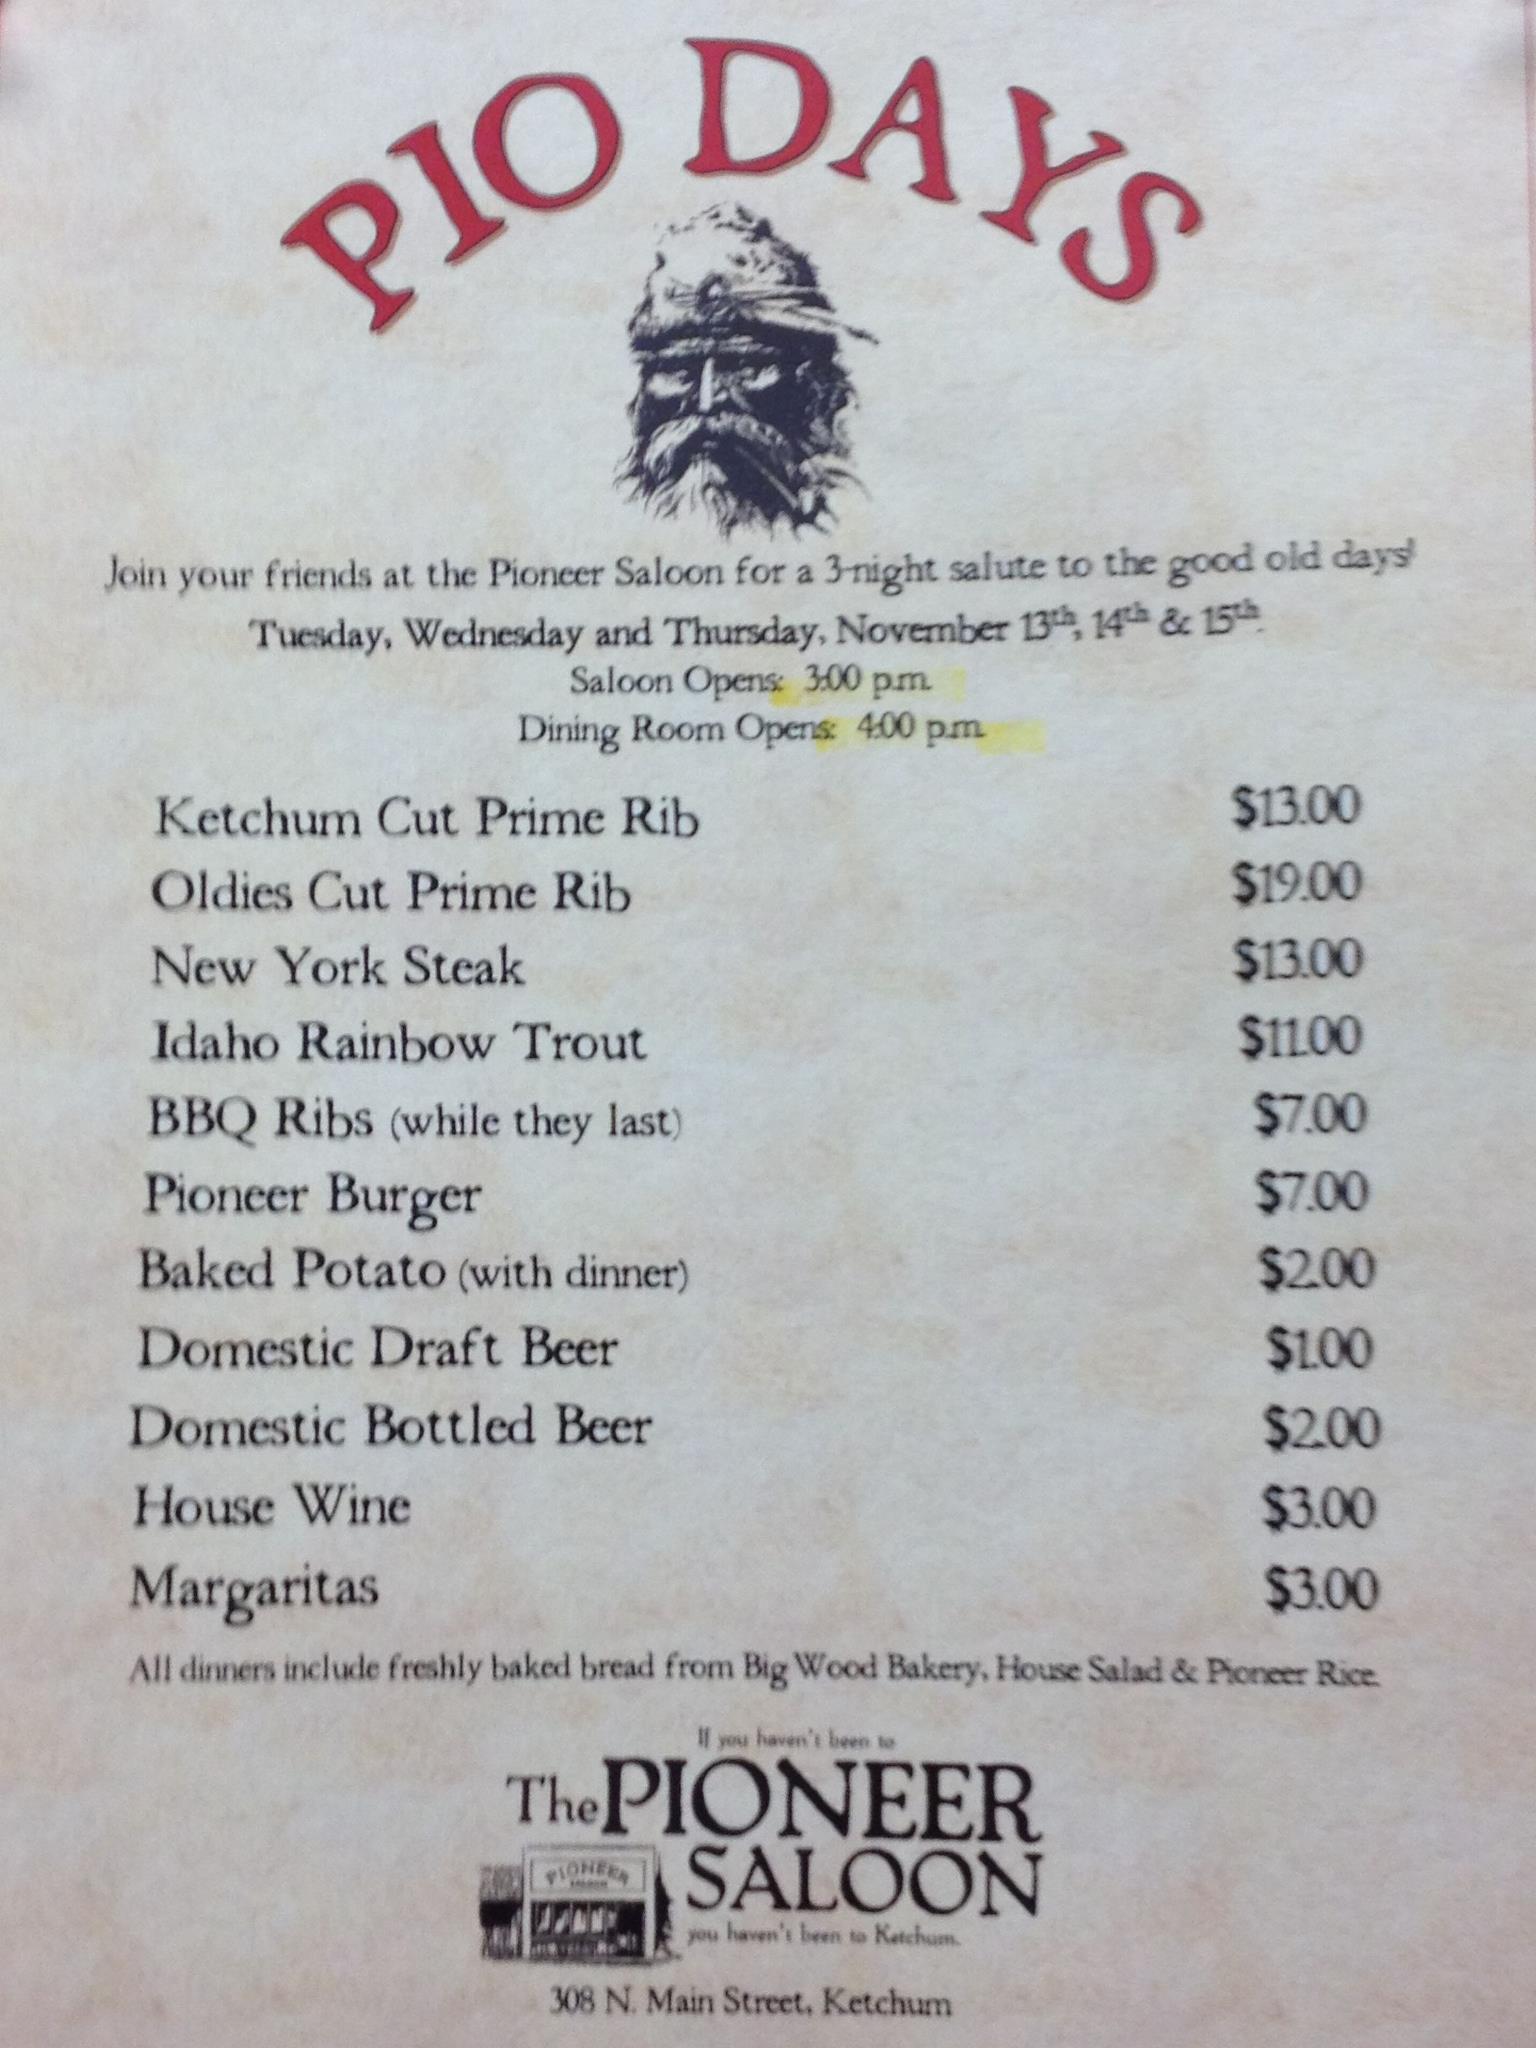 PIO DAYS
Join your friends at the Pioneer Saloon for a 3-night salute to the good old days!
Tuesday, Wednesday and Thursday, November 13th, 14th & 15th.
Saloon Opens: 3:00 p.m.
Dining Room Opens: 4:00 p.m.
Ketchum Cut Prime Rib $13.00
Oldies Cut Prime Rib $19.00
New York Steak $13.00
Idaho Rainbow Trout $11.00
BBQ Ribs (while they last) $7.00
Pioneer Burger $7.00
Baked Potato (with dinner) $2.00
Domestic Draft Beer $1.00
Domestic Bottled Beer $2.00
House Wine $3.00
Margaritas $3.00
All dinners include freshly baked bread from Big Wood Bakery, House Salad & Pioneer Rice.
If you haven't been to
The PIONEER
SALOON
PIONEER
SALOON
you haven't been to Ketchum.
308 N. Main Street, Ketchum